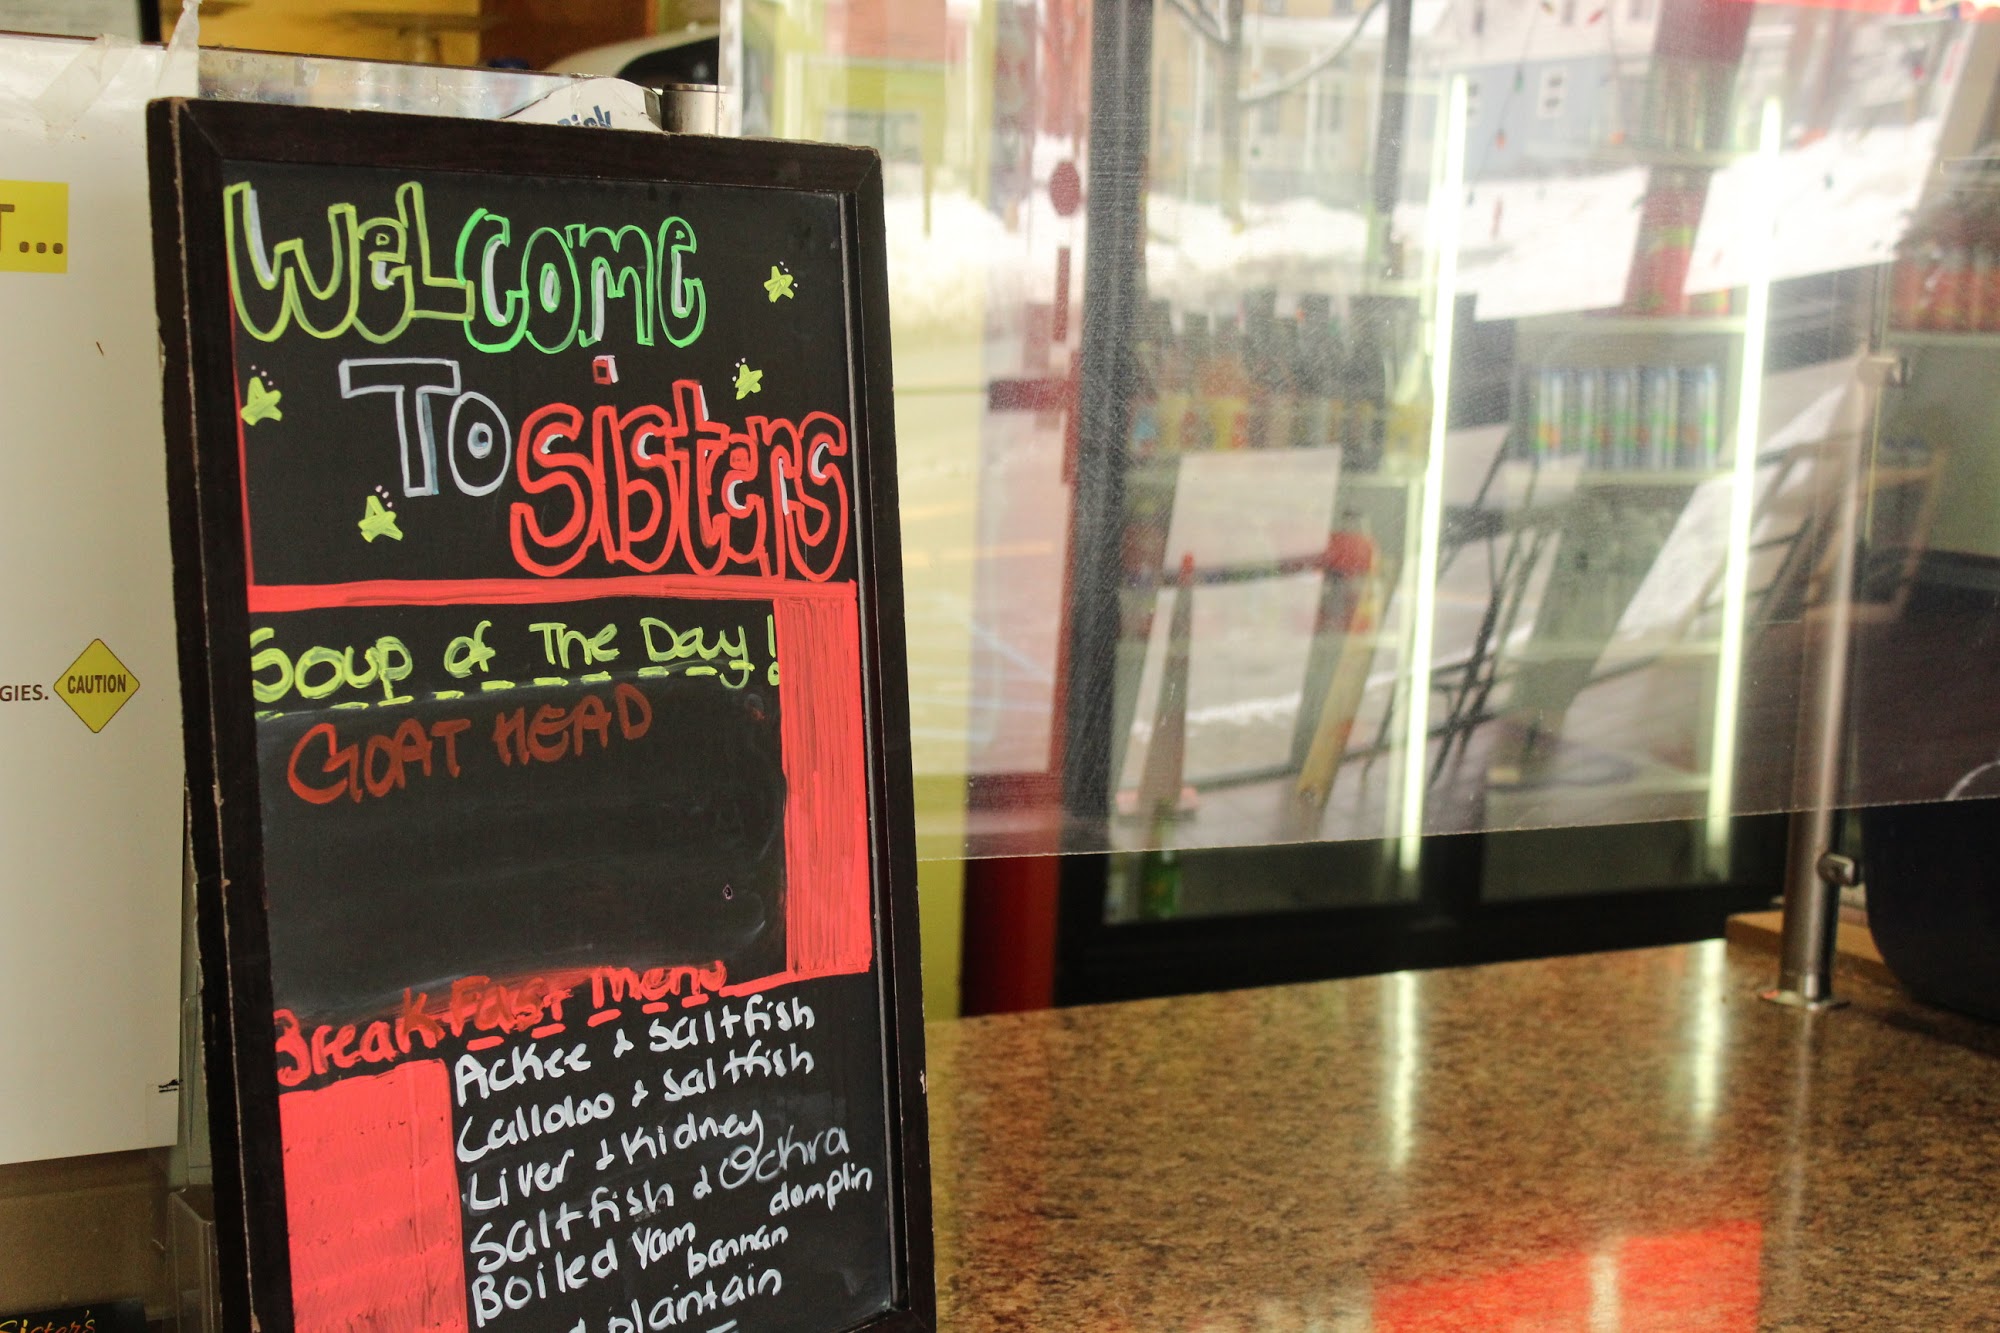 T...
GIES.
CAUTION
WELCOME
To
Sisters
Soup of The Day!
GOAT HEAD
Breakfast Menu
Ackee & Saltfish
Calloloo & Saltfish
Liver & Kidney
Saltfish & Ochra
Boiled Yam damplin
bannan
plaintain
Sister's